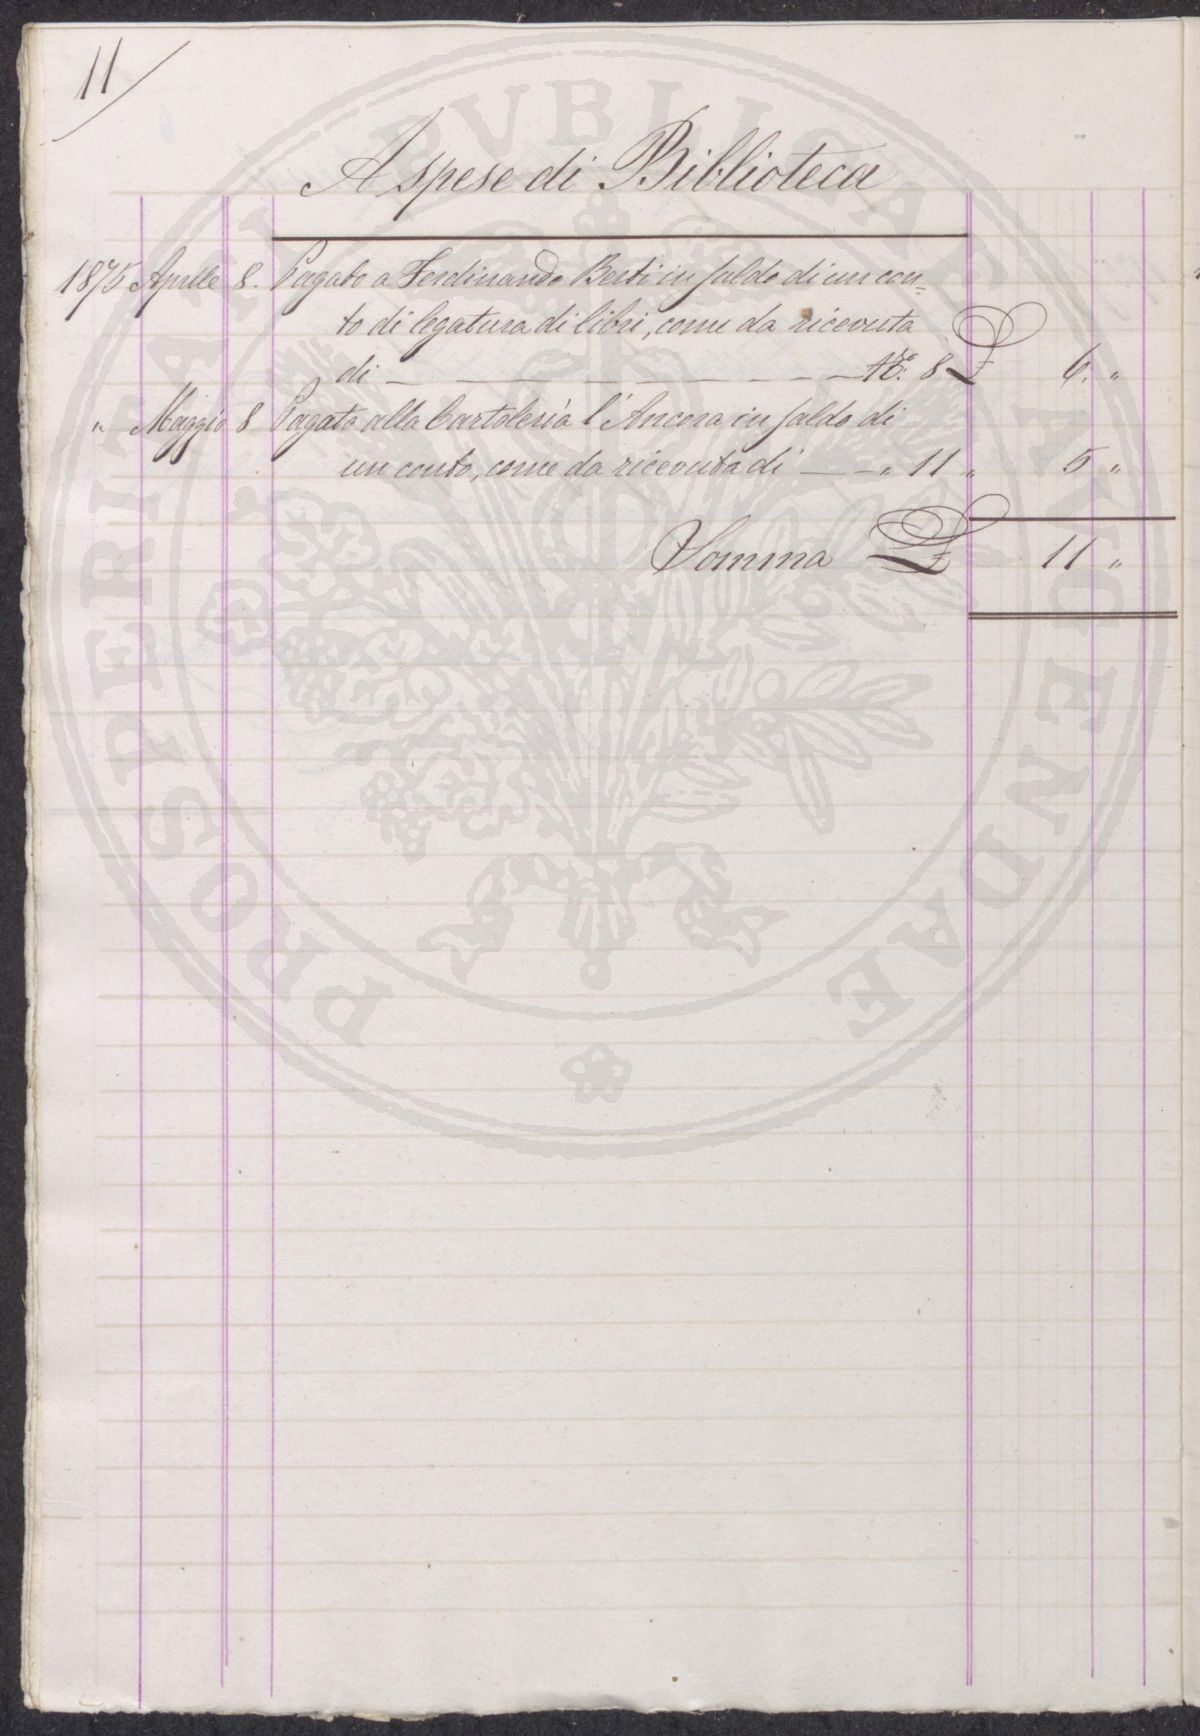 11
A spese di Biblioteca
1875 Aprile 8. Pagato a Ferdinando Berti in saldo di un con=
to di legatura di libri, come da ricevuta
di — — — — — — — N.º 8 £ 6. "
" Maggio 8 Pagato alla Cartoleria l'Ancora in saldo di
un conto, come da ricevuta di — — " 11 " 5 "
Somma £ 11 "
PROSPERITATI PVBLICAE AVGENDAE